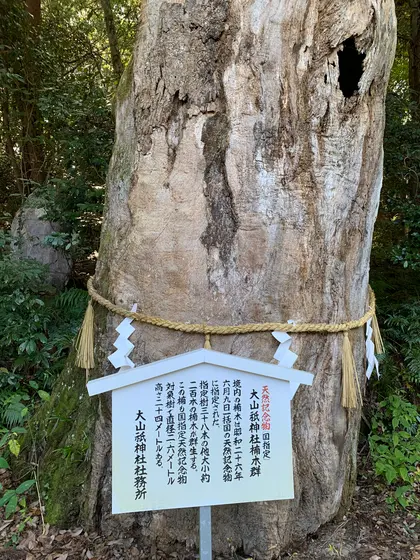 天然記念物 国指定
大山祇神社楠木群
境内の楠木は昭和二十六年
六月九日一括国の天然記念物
に指定された
指定樹三十八本の他大小約
二百本の楠木が群生する。
この楠も国指定天然記念物
対象樹で直径二・六メートル
高さ二十四メートルある。
大山祇神社社務所